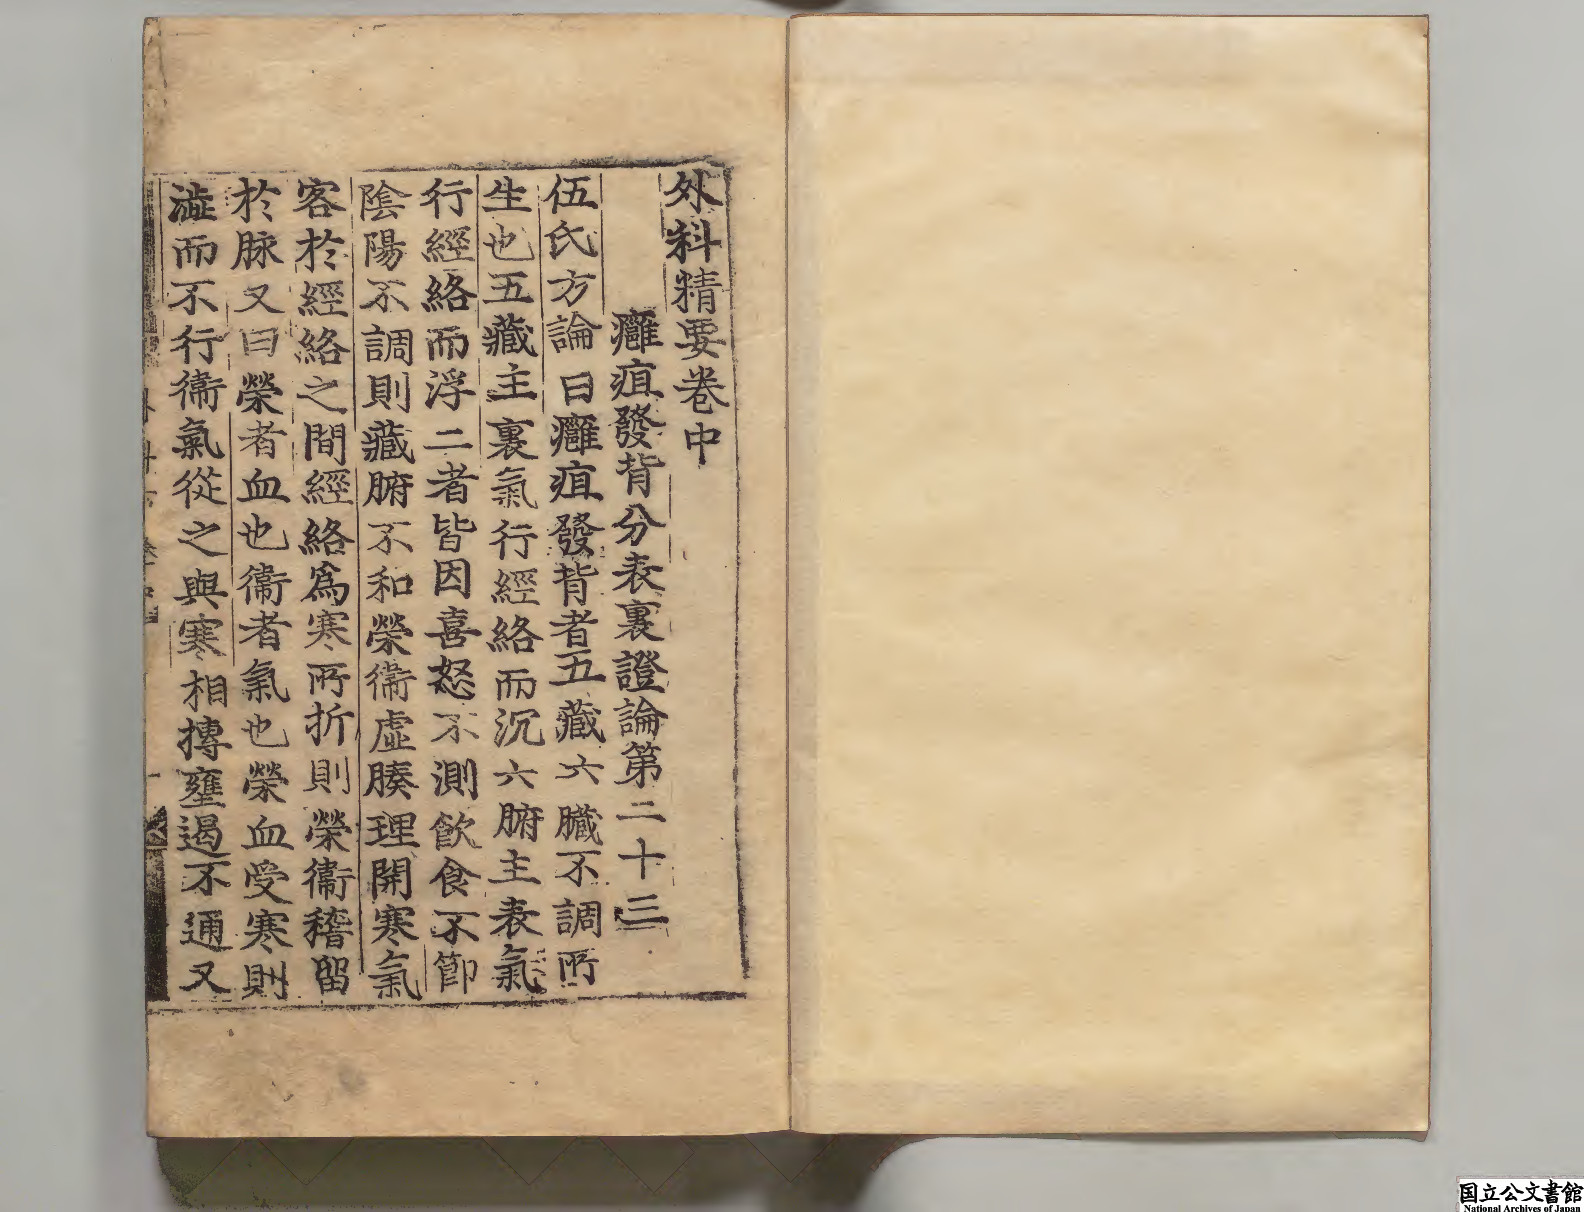 外科精要卷中
癰疽發背分表裏證論第二十三
伍氏方論曰癰疽發背者五藏六臟不調所
生也五藏主裏氣行經絡而沉六腑主表氣
行經絡而浮二者皆因喜怒不測飲食不節
陰陽不調則藏腑不和榮衞虛腠理開寒氣
客於經絡之間經絡爲寒所折則榮衞稽留
於脉又曰榮者血也衞者氣也榮血受寒則
澁而不行衞氣從之與寒相摶壅遏不通又
国立公文書館
National Archives of Japan